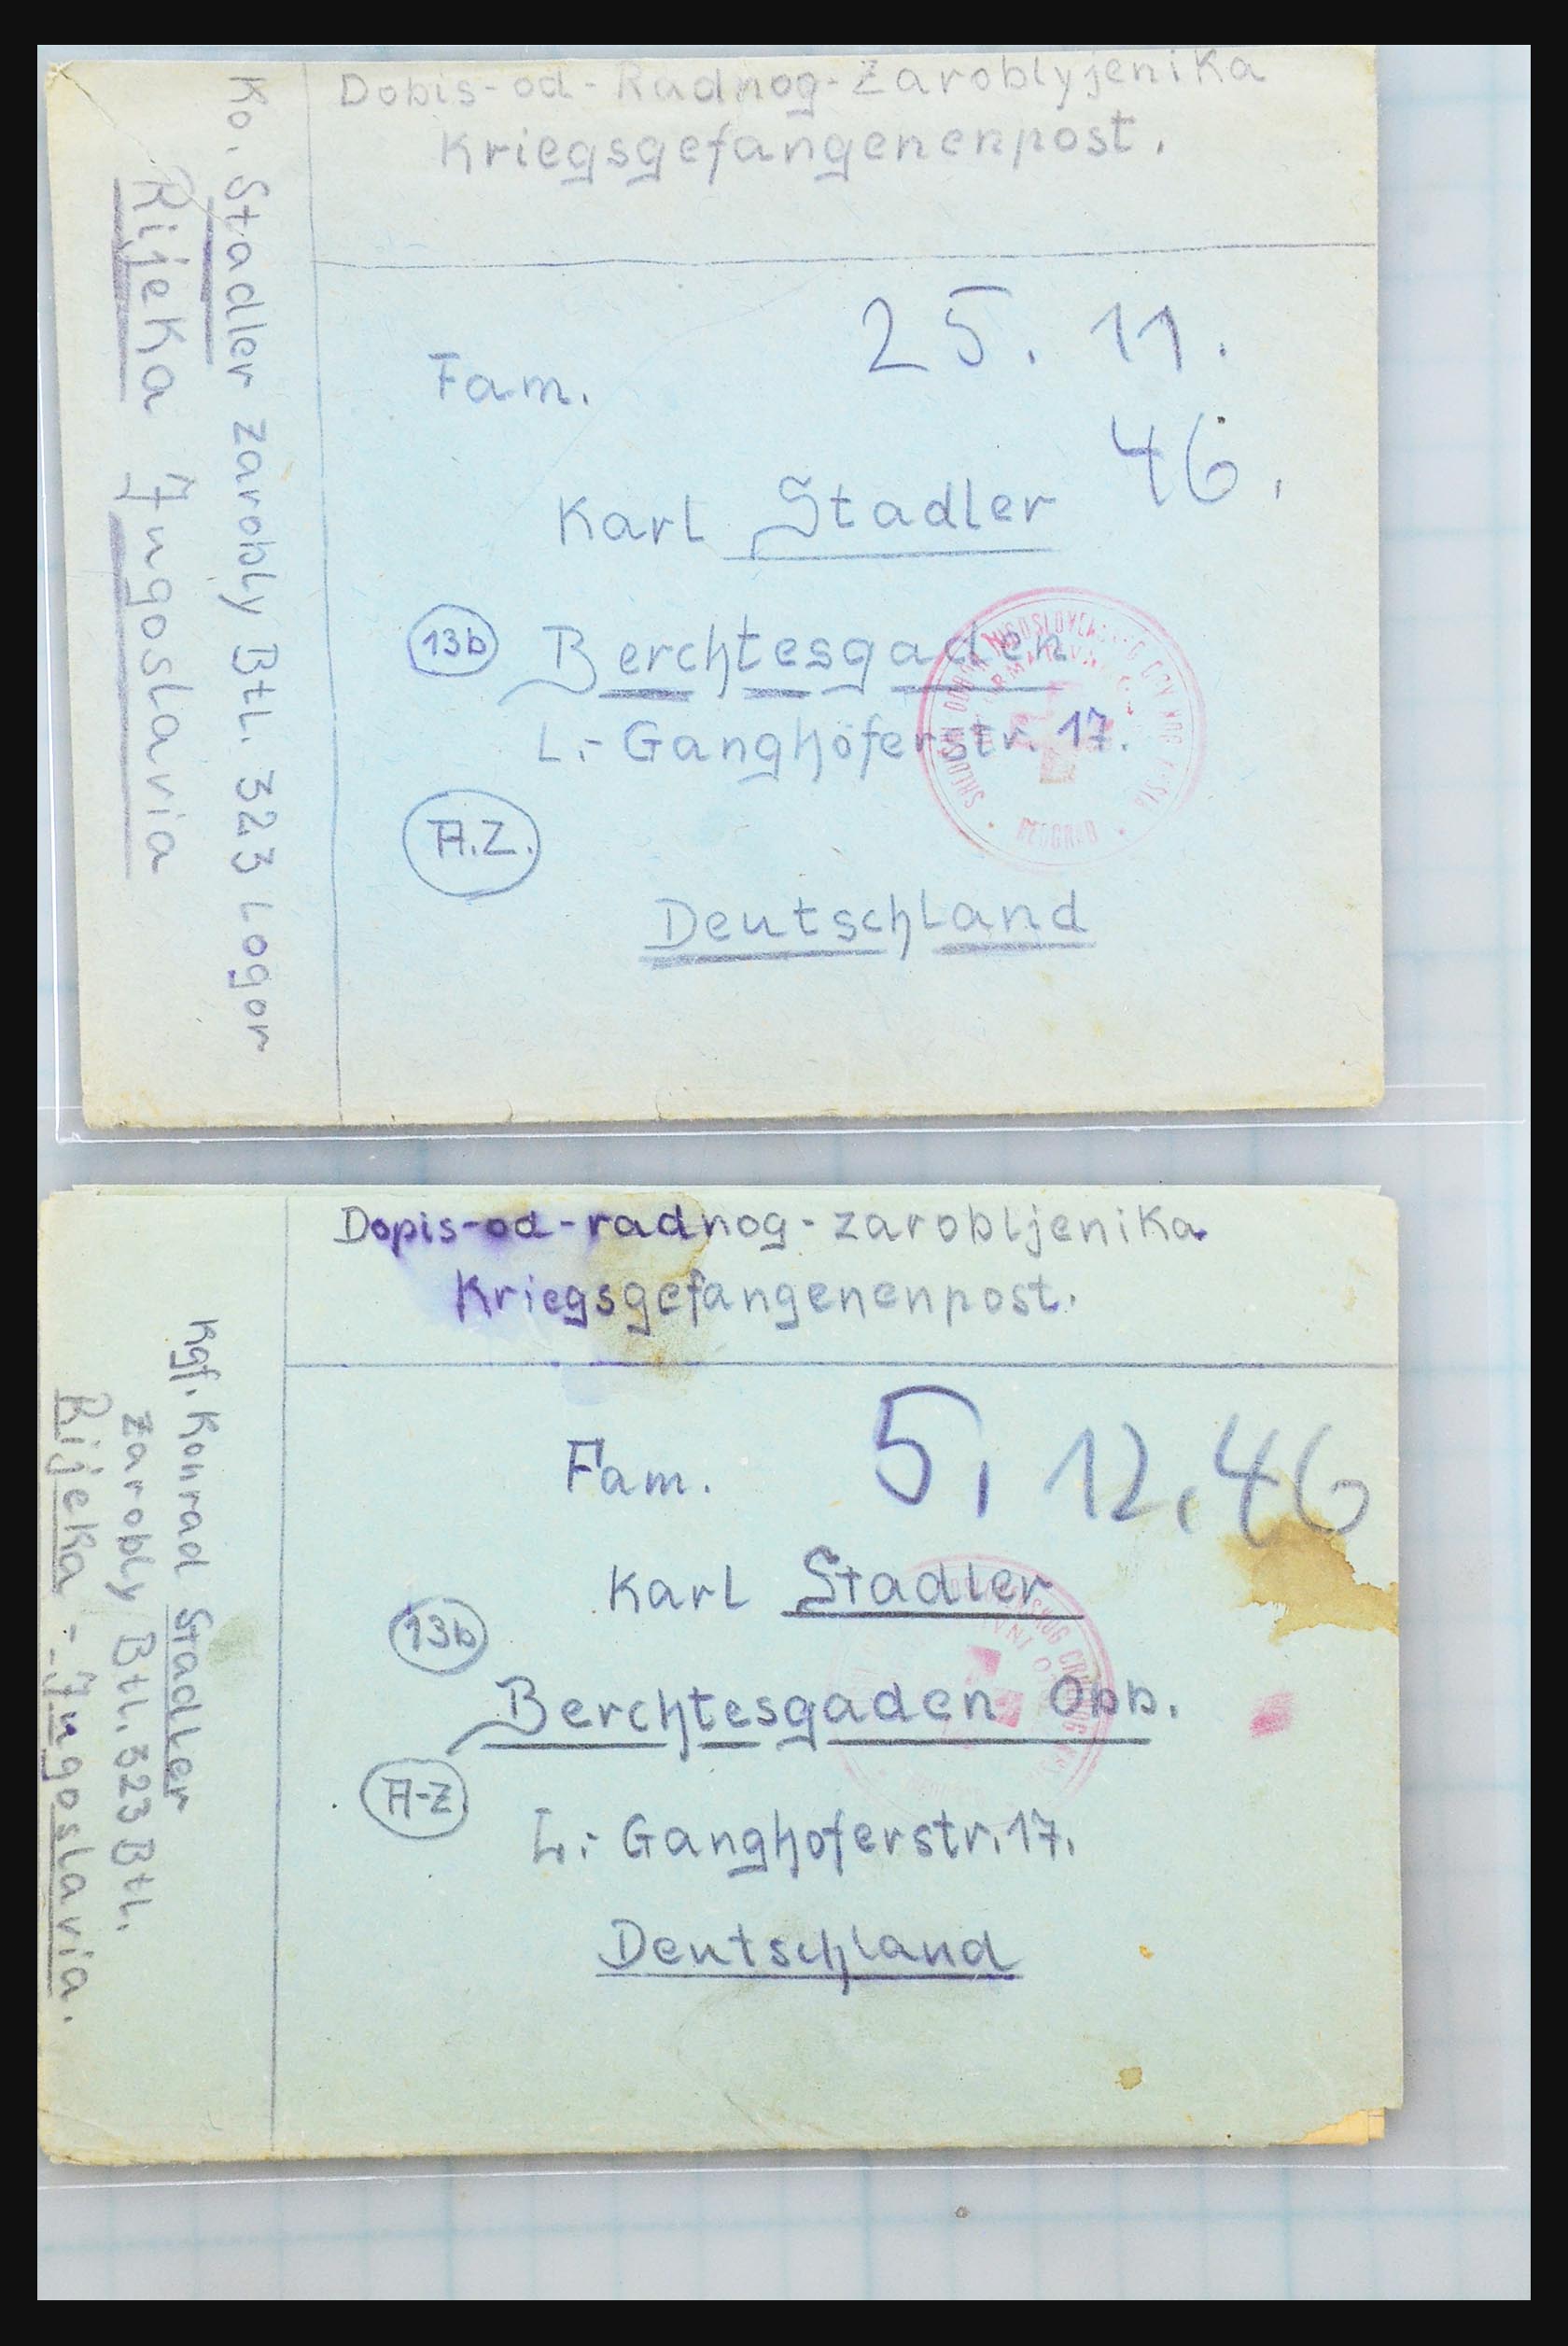 Dobis-od-Radnog-Zaroblyjenika
Kriegsgefangenenpost.
Ko. Stadler zarobly Btl. 323 Logor
Rijeka Jugoslavia
25. 11.
46.
Fam.
Karl Stadler
13b Berchtesgaden
L.- Ganghöferstr. 17.
A.Z.
Deutschland
BEOGRAD
Dopis-od-radnog-zarobljenika
Kriegsgefangenenpost.
Kgf. Konrad Stadler
zarobly Btl. 323 Btl.
Rijeka - Jugoslavia.
Fam. 5. 12. 46
Karl Stadler
13b
Berchtesgaden Obb.
A-Z
L.- Ganghoferstr. 17.
Deutschland